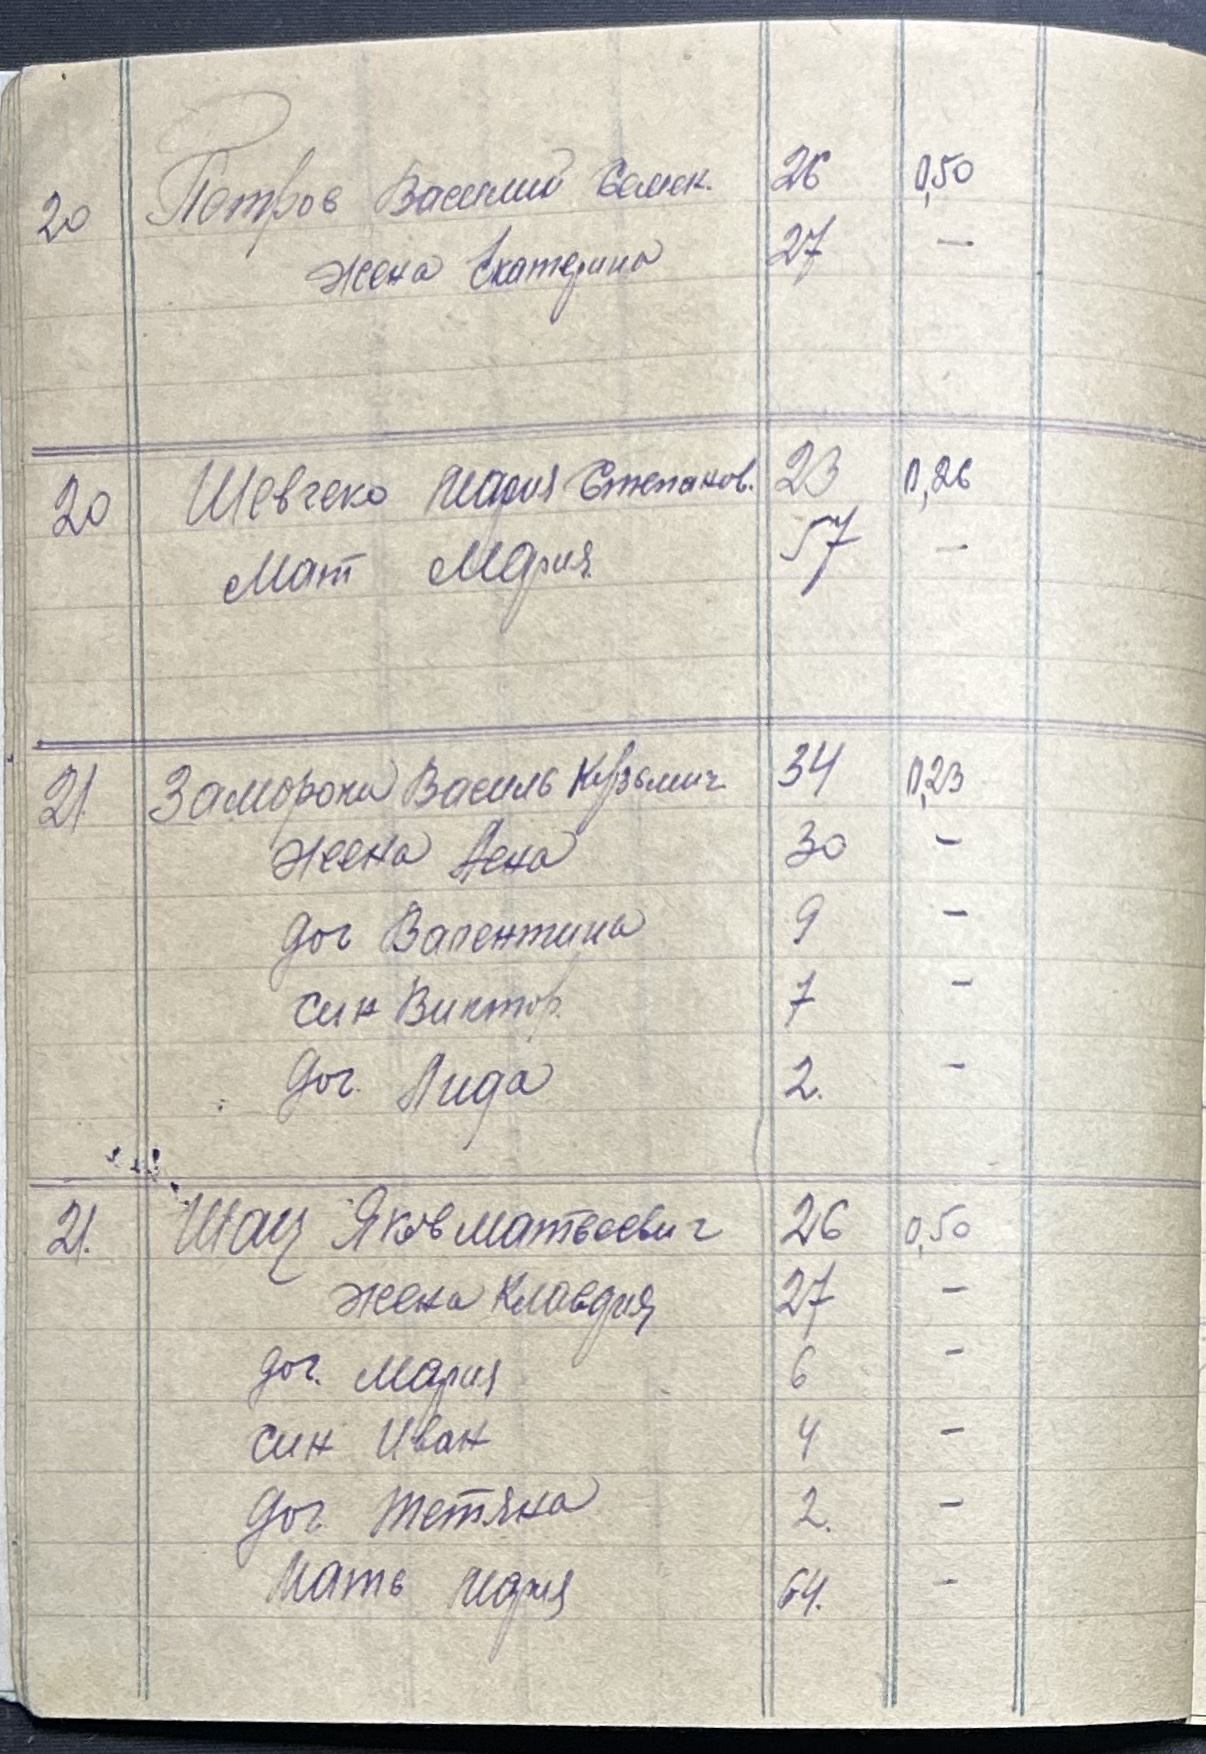 20 Петров Василий Семен. 26 0,50
жена Екатерина 27 —
20 Шевчеко Мария Степанов. 23 0,26
Мат Мария 57 —
21. Заморока Василь Кузьмич 34 0,23
жена Лена 30 -
доч Валентина 9 -
син Виктор. 7 -
доч. Лида 2. -
21. Шац Яков Матвеевич 26 0,50
жена Клавдия 27 -
доч. Мария 6 -
син Иван 4 -
доч. Тетяна 2. -
Мать Мария 64. -